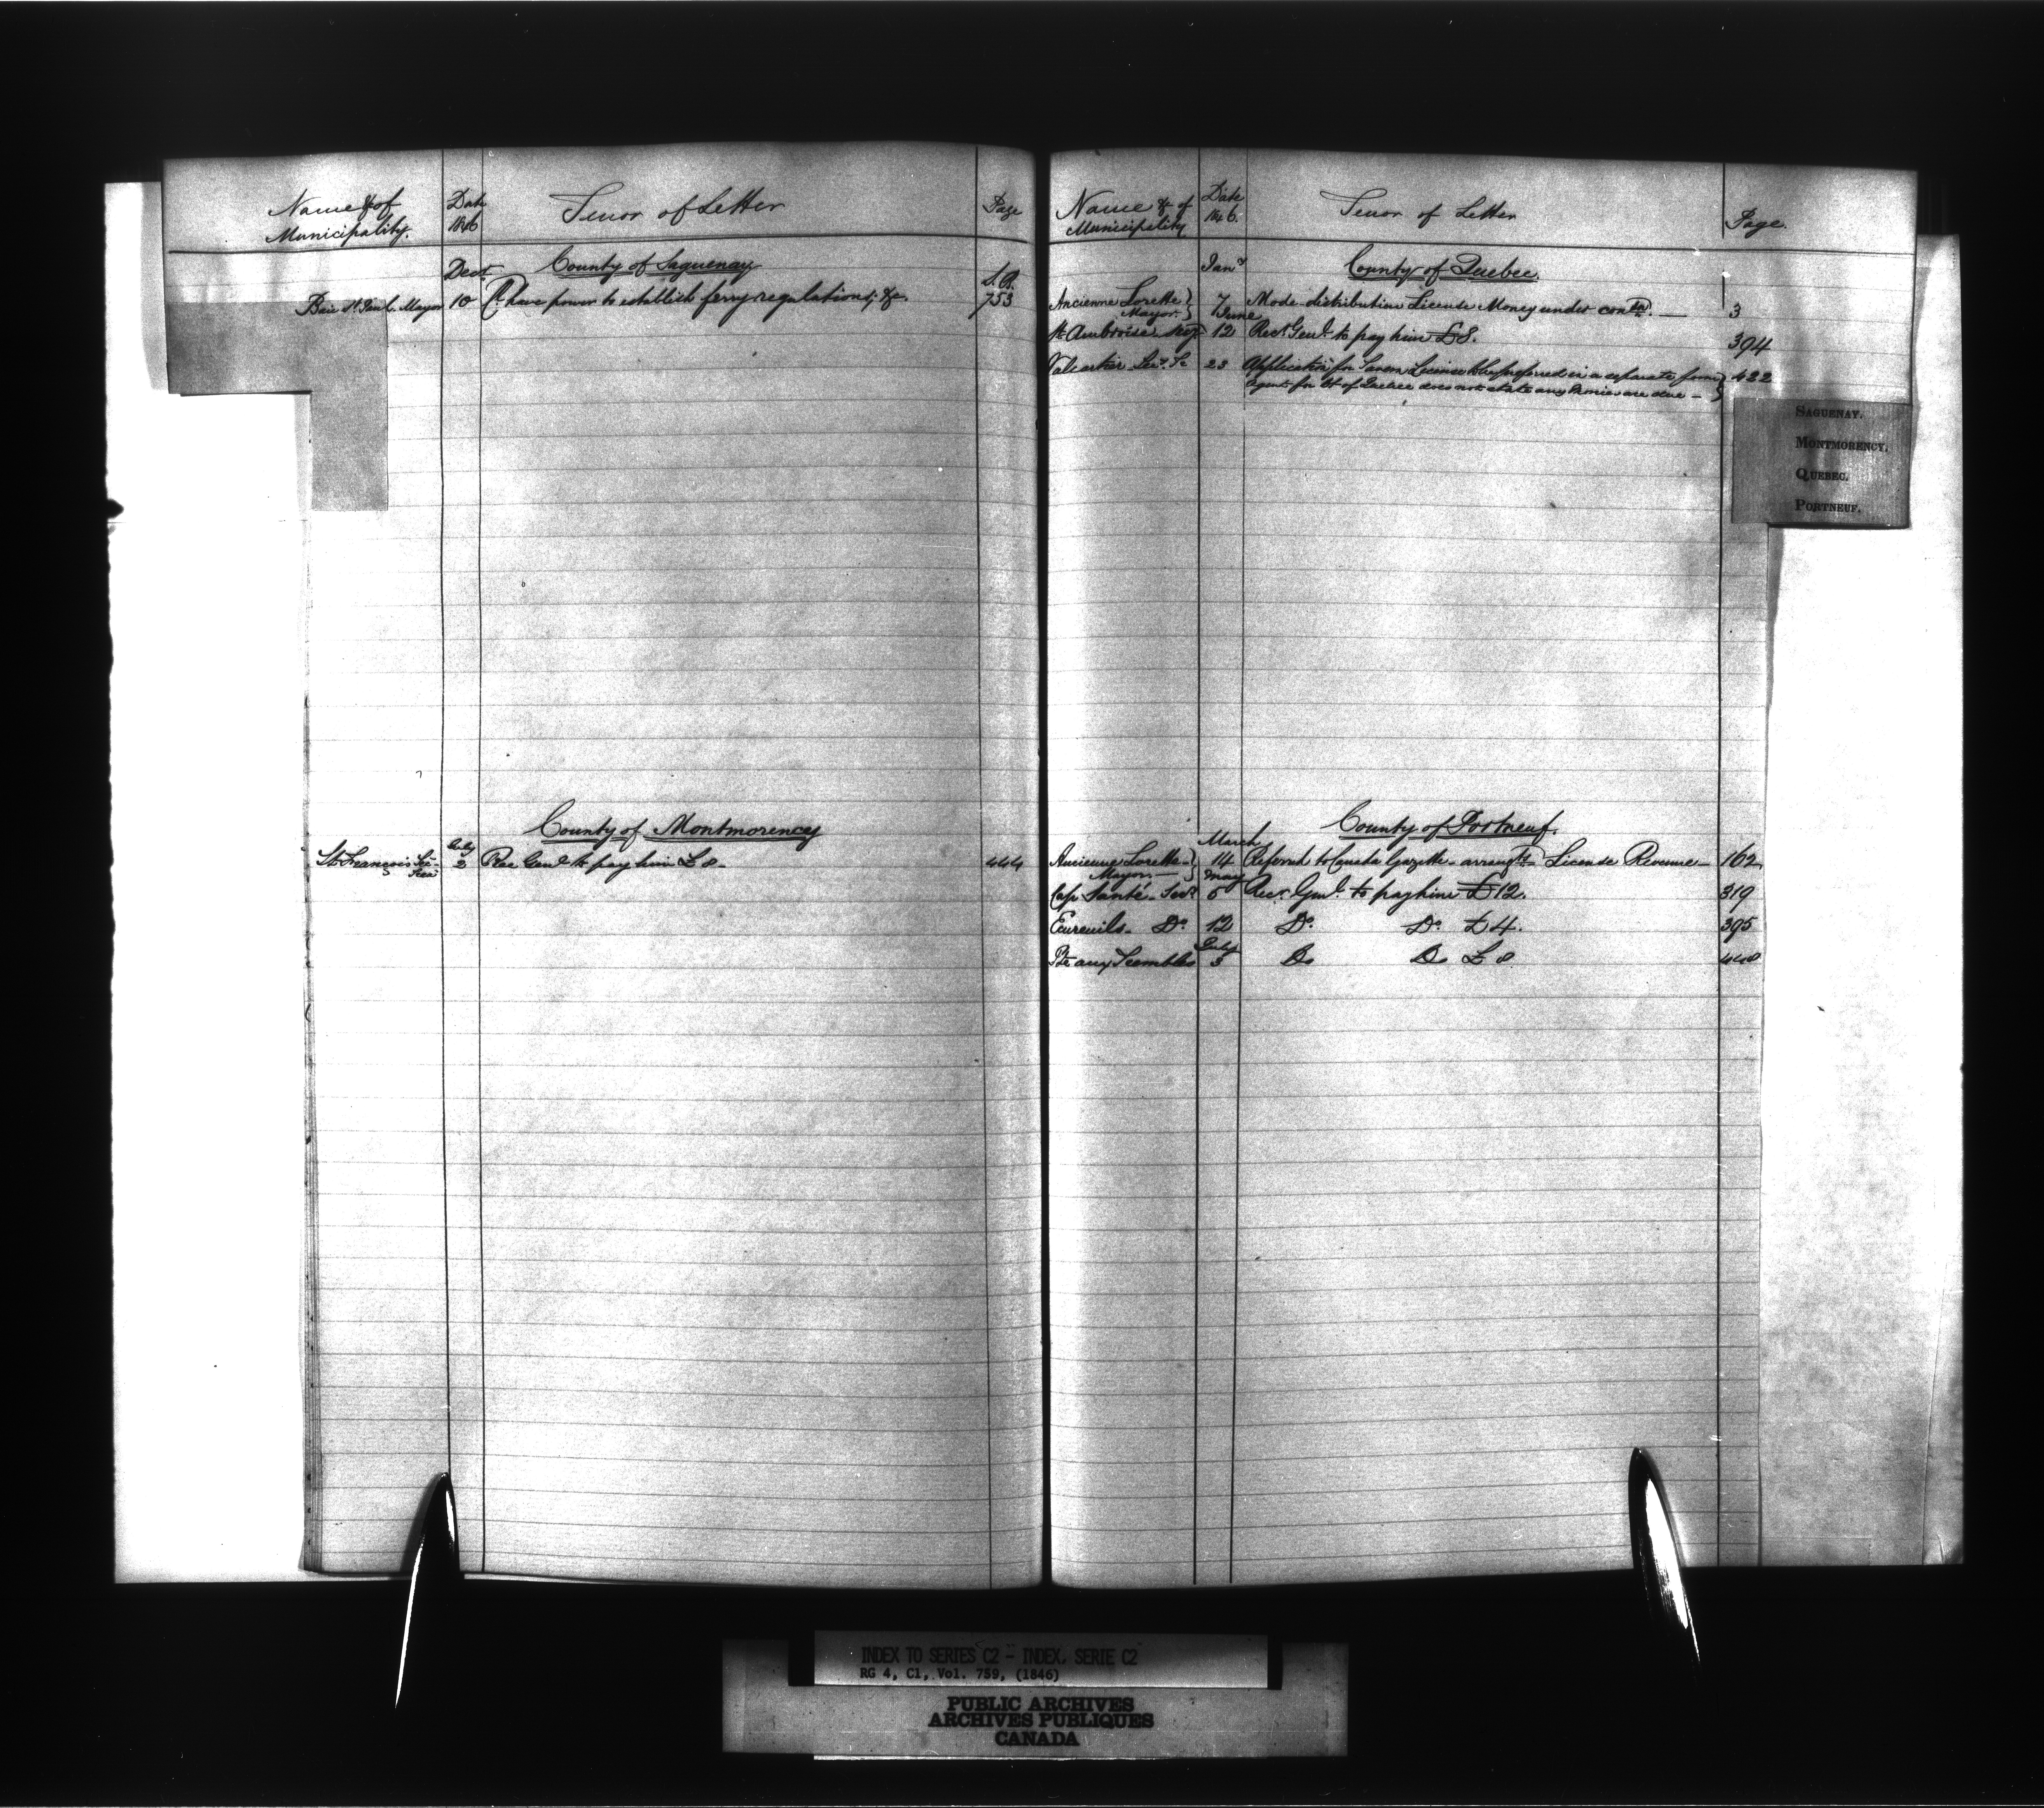 Name &c of
Municipality.
Date
1846
Tenor of Letter
Page
County of Saguenay
Decr.
L.C.
Baie St. Paul. Mayor 10 have power to establish ferry regulations; &c. 753
County of Montmorency
July
St. François Sec. 2 Rec Genl to pay him £8. 444
Trea
Name &c of
Municipality
Date
1846.
Tenor of Letter
Page.
County of Quebec.
Jany
Ancienne Lorette } 7 Mode distribution License Money under 3
Mayor. } June
St. Ambroise 12 Recr. Genl. to pay him £8. 394
Valcartier Secy. 23 Application for Tavern License to be preferred in a separate form } 422
Agent for Ct. of Quebec does not state any Monies are due -
SAGUENAY.
MONTMORENCY.
QUEBEC.
PORTNEUF.
County of Portneuf.
March
Ancienne Lorette } 14 Referred to Canada Gazette - arrangts License Revenue - 162
Mayor - } May
Cap Santé - Secy. 6 Recr. Genl. to pay him £12. 319
Ecureuils - Do. 12 Do. Do. £4. 395
July
Pte aux Trembles 3 Do Do £8 448
INDEX TO SERIES C2 - INDEX, SERIE C2
RG 4, C1, Vol. 759, (1846)
PUBLIC ARCHIVES
ARCHIVES PUBLIQUES
CANADA